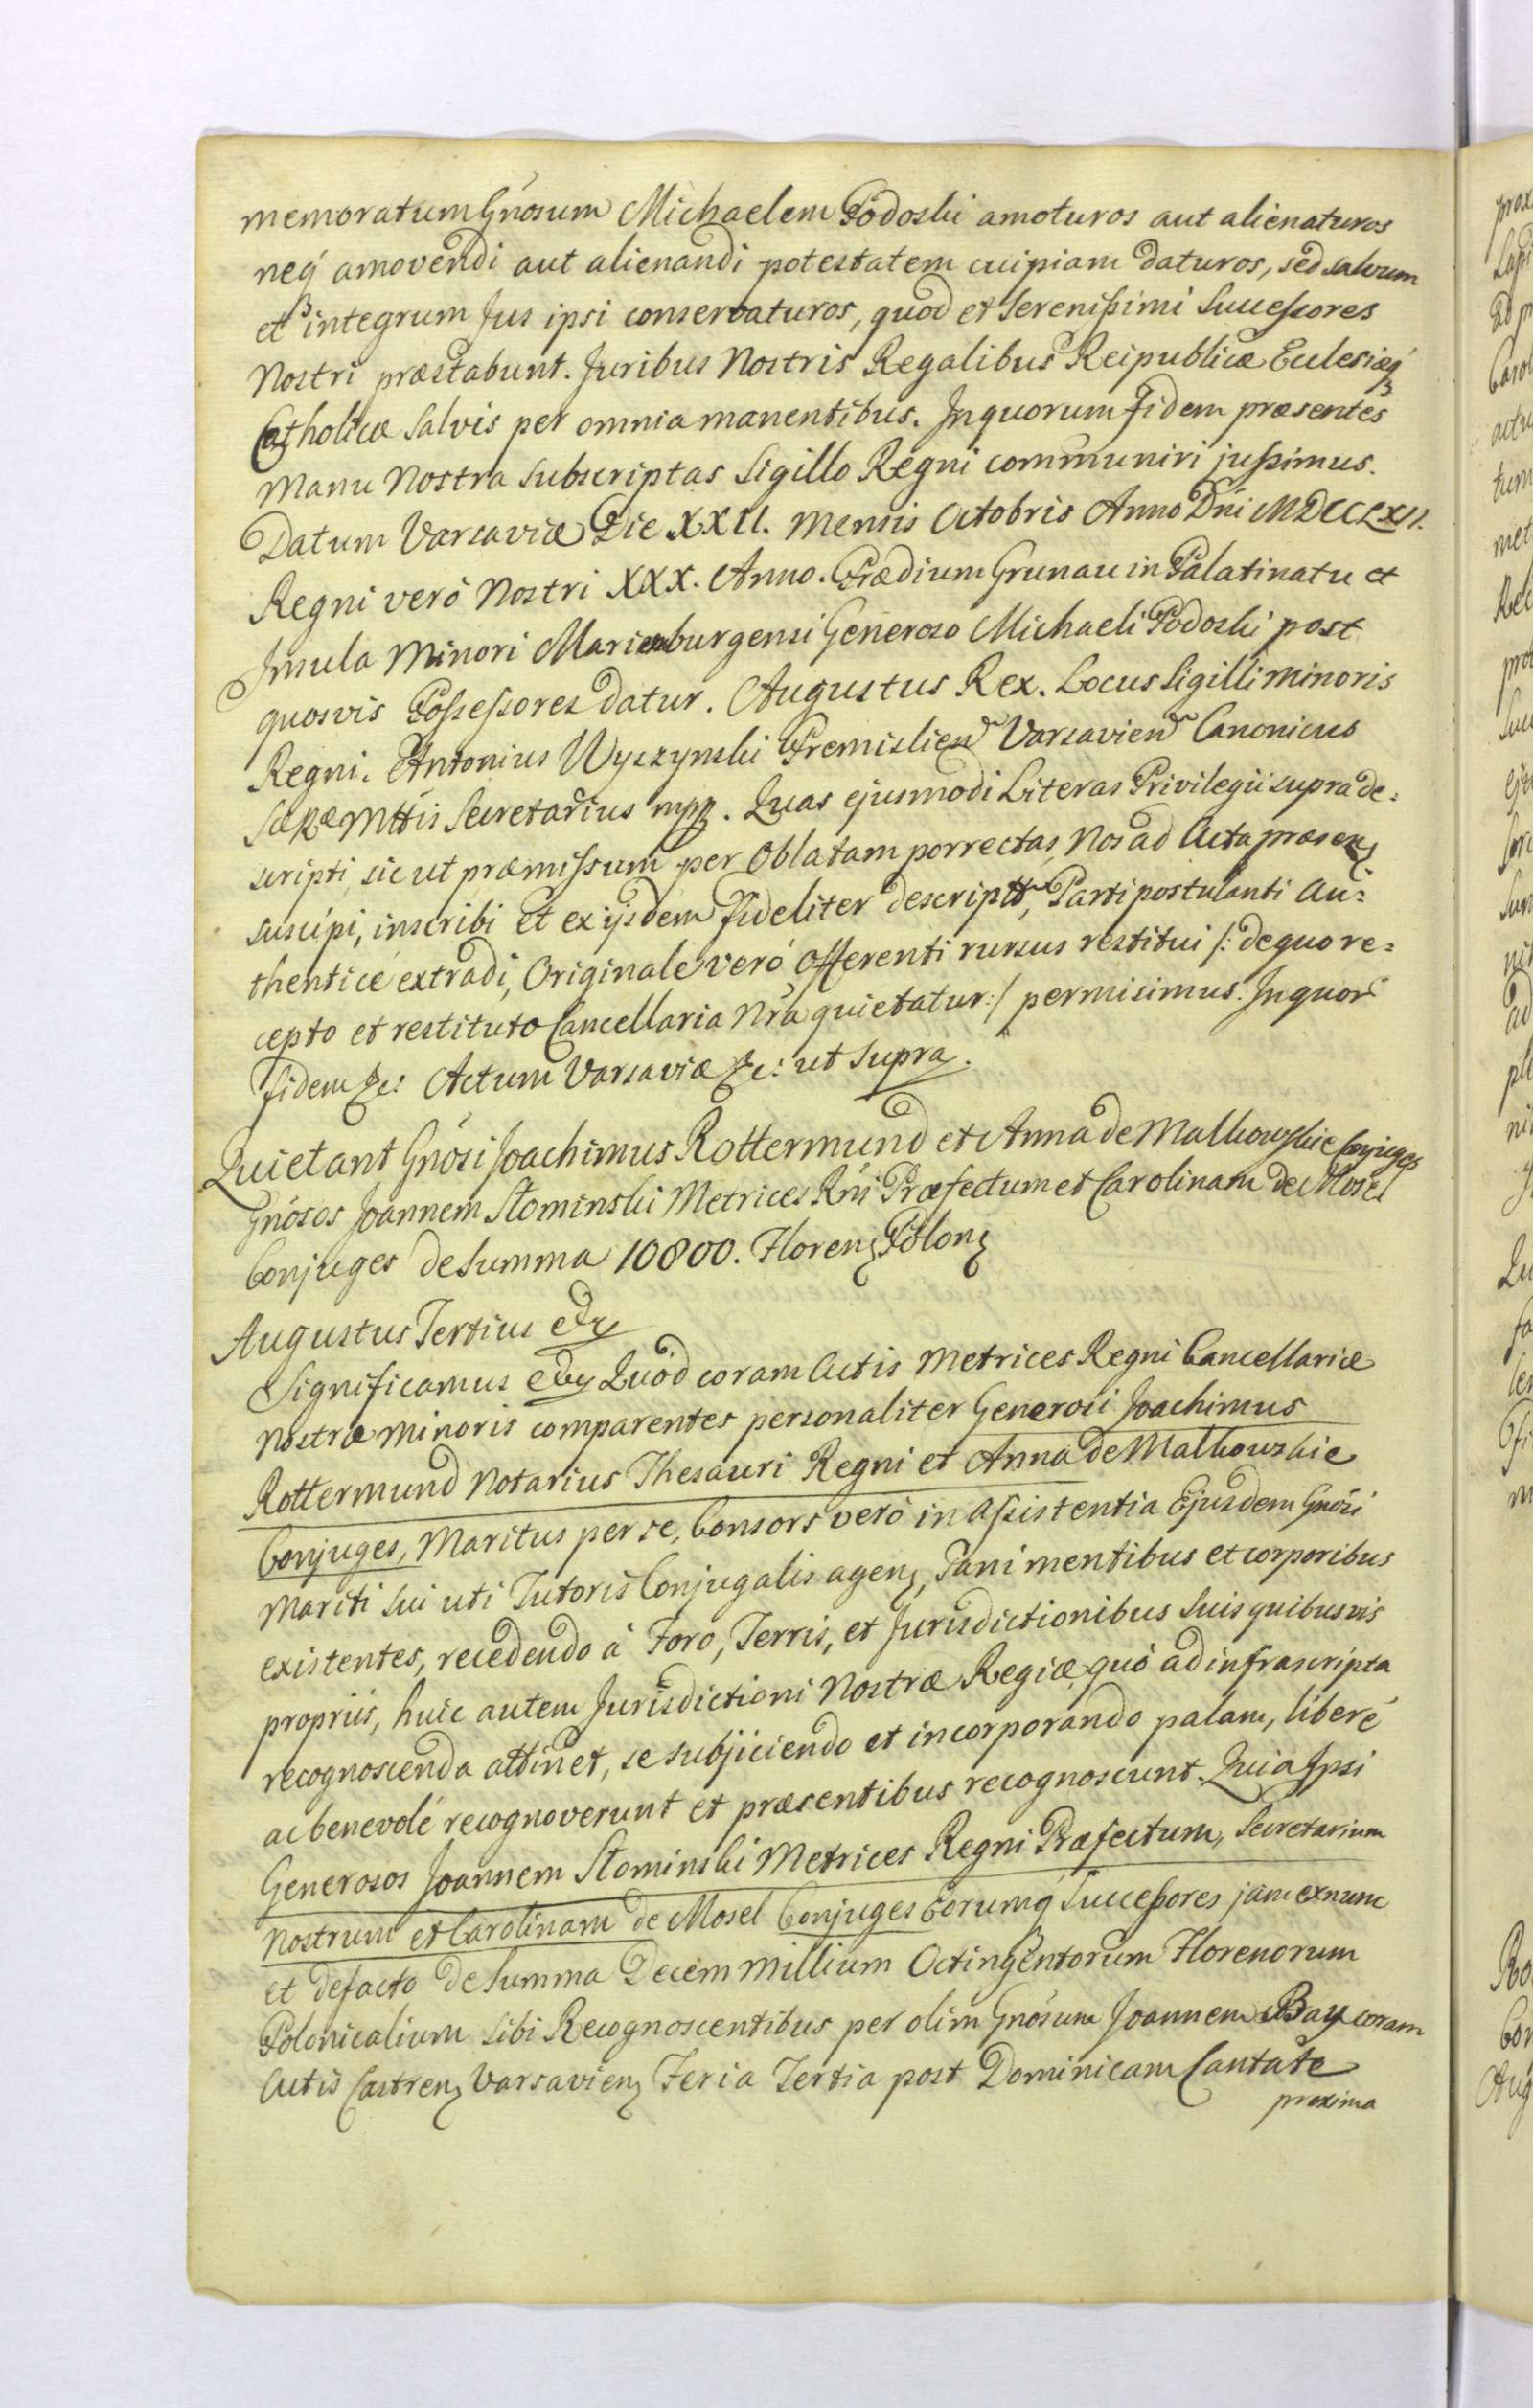 memoratum Gnōsum Michaelem Podoski amoturos aut alienaturos
neq́ amovendi aut alienandi potestatem cuipiam daturos, sed salvum
et integrum Jus ipsi conservaturos, quod et Serenißimi Succeßores
Nostri præstabunt. Juribus Nostris Regalibus Reipublicæ Ecclesiæq́
Catholicæ salvis per omnia manentibus. In quorum fidem præsentes
Manu Nostra subscriptas Sigillo Regni communiri jußimus.
Datum Varsaviæ Die XXII. Mensis Octobris Anno Dni MDCCLXII.
Regni verò Nostri XXX. Anno. Prædium Grunau in Palatinatu et
Insula Minori Marienburgensi Generoso Michaeli Podoski post
quosvis Poſseſsores datur. Augustus Rex. Locus Sigilli minoris
Regni. Antonius Wyszynski Premislien Varsavien Canonicus
Mttis Secretarius mpp. Quas ejusmodi Literas Privilegii suprade:
scripti, sic ut præmiſsum per Oblatam porrectas, Nos ad Acta præsen
suscipi, inscribi et ex ijsdem fideliter descriptt, Parti postulanti au:
thenticè extradi, Originale verò offerenti rursus restitui /: de quo re:
cepto et restituto Cancellaria Nra quietatur:/ permisimus. In quor
fidem &c: Actum Varsaviæ &c: ut supra.
Quietant Gnōsi Joachimus Rottermund et Anna de Malkowskie Conjuges
Gnōsos Joannem Słominski Metrices Rni Præfectum et Carolinam de Mosel
Conjuges de Summa 10800. Floren Polon
Augustus Tertius &c
Significamus &c Quod coram Actis Metrices Regni Cancellariæ
Nostræ Minoris comparentes personaliter Generosi Joachimus
Rottermund Notarius Thesauri Regni et Anna de Malkowskie
Conjuges, Maritus per se, Consors verò in aſsistentia Ejusdem Gnōsi
Mariti sui uti Tutoris Conjugalis agen, sani mentibus et corporibus
existentes, recedendo à Foro, Terris, et Jurisdictionibus suis quibusvis
propriis, huic autem Jurisdictioni Nostræ Regiæ, quò ad infrascripta
recognoscenda attinet, se subjiciendo et incorporando palam, liberè
ac benevolè recognoverunt et præsentibus recognoscunt. Quia Ipsi
Generosos Joannem Słominski Metrices Regni Præfectum, Secretarium
Nostrum et Carolinam de Mosel Conjuges Eorumq́ Succeßores jam exnunc
et defacto de Summa Decem millium Octingentorum Florenorum
Polonicalium sibi Recognoscentibus per olim Gnōsum Joannem Bay coram
Actis Castren Varsavien Feria Tertia post Dominicam Cantate
proxima